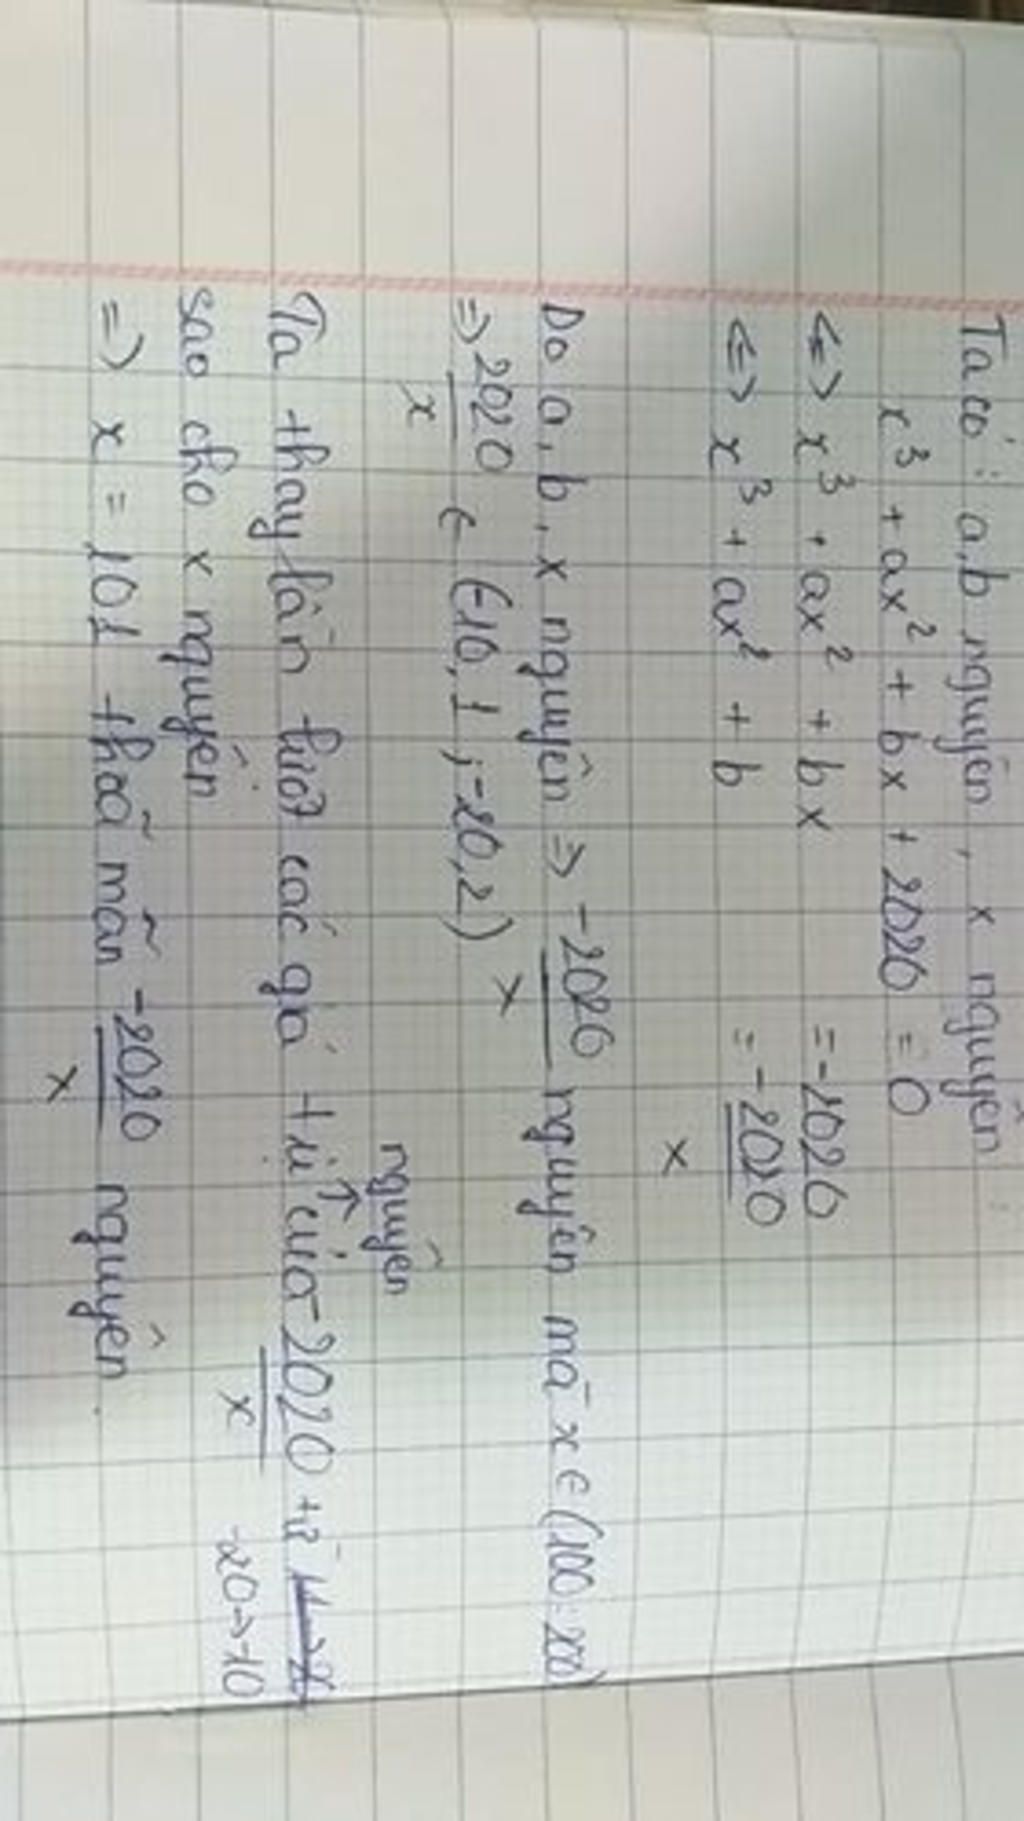 Ta có: a,b nguyên, x nguyên
x³ + ax² + bx + 2020 = 0
<=> x³ + ax² + bx = -2020
<=> x³ + ax² + b = -2020/x
Do a, b, x nguyên => -2020/x nguyên mà x ∈ (100; 200)
=> 2020/x ∈ (-10,1 ; -20,2)
nguyên
Ta thay lần lượt các giá trị của -2020/x từ -20 -> -10
sao cho x nguyên
=> x = 101 thoã mãn -2020/x nguyên.